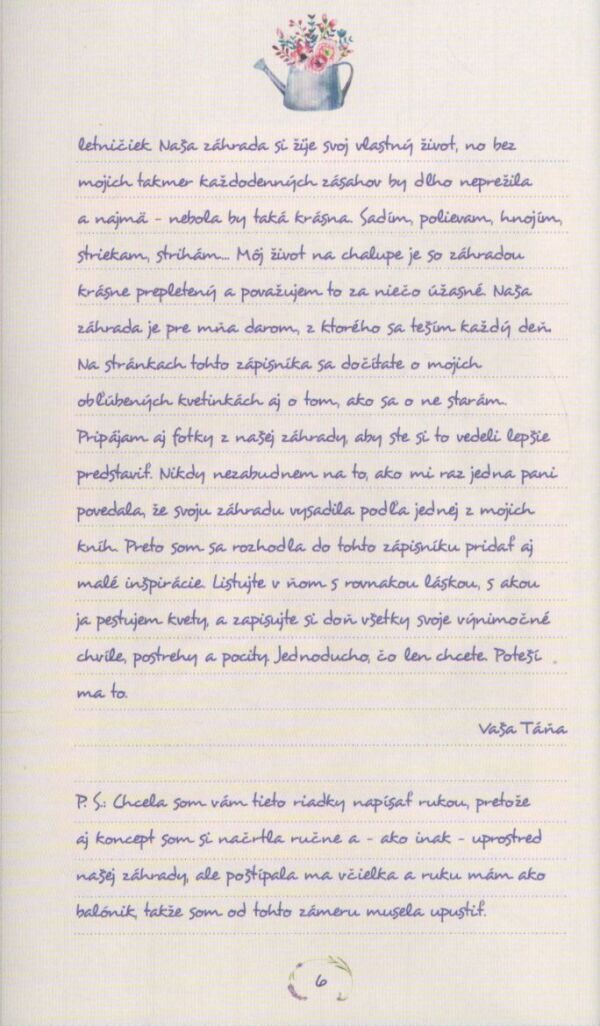 letničiek. Naša záhrada si žije svoj vlastný život, no bez
mojich takmer každodenných zásahov by dlho neprežila
a najmä - nebola by taká krásna. Sadím, polievam, hnojím,
striekam, strihám... Môj život na chalupe je so záhradou
krásne prepletený a považujem to za niečo úžasné. Naša
záhrada je pre mňa darom, z ktorého sa teším každý deň.
Na stránkach tohto zápisníka sa dočítate o mojich
obľúbených kvetinkách aj o tom, ako sa o ne starám.
Pripájam aj fotky z našej záhrady, aby ste si to vedeli lepšie
predstaviť. Nikdy nezabudnem na to, ako mi raz jedna pani
povedala, že svoju záhradu vysadila podľa jednej z mojich
kníh. Preto som sa rozhodla do tohto zápisníku pridať aj
malé inšpirácie. Listujte v ňom s rovnakou láskou, s akou
ja pestujem kvety, a zapisujte si doň všetky svoje výnimočné
chvíle, postrehy a pocity. Jednoducho, čo len chcete. Poteší
ma to.
Vaša Táňa
P. S.: Chcela som vám tieto riadky napísať rukou, pretože
aj koncept som si načrtla ručne a - ako inak - uprostred
našej záhrady, ale poštípala ma včielka a ruku mám ako
balónik, takže som od tohto zámeru musela upustiť.
6